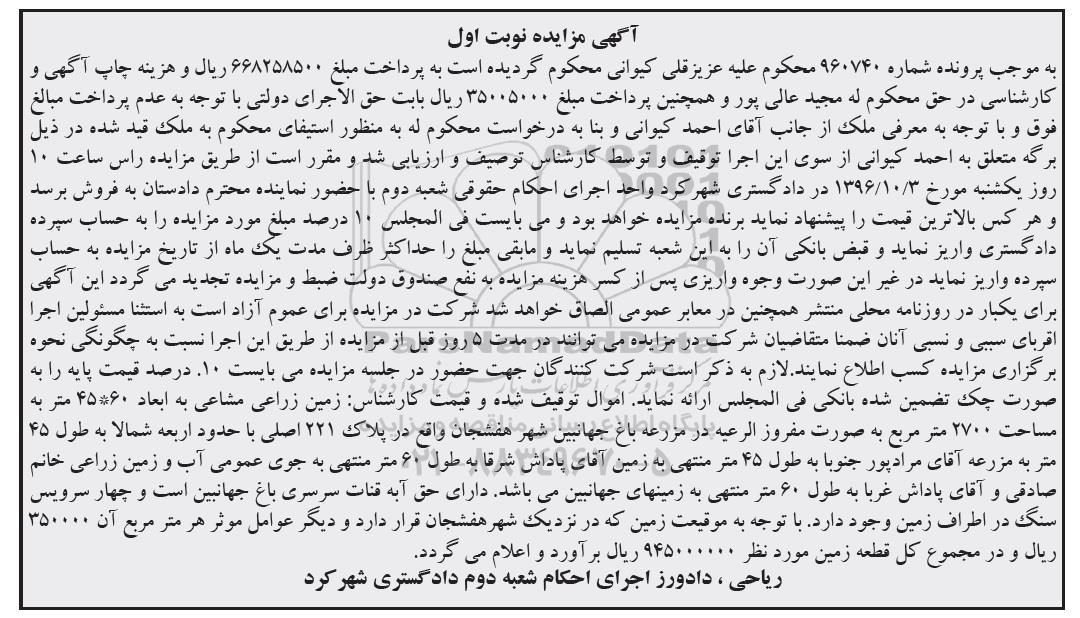 آگهی مزایده نوبت اول
به موجب پرونده شماره ۹۶۰۷۴۰ محکوم علیه عزیزقلی کیوانی محکوم گردیده است به پرداخت مبلغ ۶۶۸۲۵۸۵۰۰ ریال و هزینه چاپ آگهی و
کارشناسی در حق محکوم له مجید عالی پور و همچنین پرداخت مبلغ ۳۵۰۰۵۰۰۰ ریال بابت حق الاجرای دولتی با توجه به عدم پرداخت مبالغ
فوق و با توجه به معرفی ملک از جانب آقای احمد کیوانی و بنا به درخواست محکوم له به منظور استیفای محکوم به ملک قید شده در ذیل
برگه متعلق به احمد کیوانی از سوی این اجرا توقیف و توسط کارشناس توصیف و ارزیابی شد و مقرر است از طریق مزایده راس ساعت ۱۰
روز یکشنبه مورخ ۱۳۹۶/۱۰/۳ در دادگستری شهرکرد واحد اجرای احکام حقوقی شعبه دوم با حضور نماینده محترم دادستان به فروش برسد
و هر کس بالاترین قیمت را پیشنهاد نماید برنده مزایده خواهد بود و می بایست فی المجلس ۱۰ درصد مبلغ مورد مزایده را به حساب سپرده
دادگستری واریز نماید و قبض بانکی آن را به این شعبه تسلیم نماید و مابقی مبلغ را حداکثر ظرف مدت یک ماه از تاریخ مزایده به حساب
سپرده واریز نماید در غیر این صورت وجوه واریزی پس از کسر هزینه مزایده به نفع صندوق دولت ضبط و مزایده تجدید می گردد این آگهی
برای یکبار در روزنامه محلی منتشر همچنین در معابر عمومی الصاق خواهد شد شرکت در مزایده برای عموم آزاد است به استثنا مسئولین اجرا
اقربای سببی و نسبی آنان ضمنا متقاضیان شرکت در مزایده می توانند در مدت ۵ روز قبل از مزایده از طریق این اجرا نسبت به چگونگی نحوه
برگزاری مزایده کسب اطلاع نمایند.لازم به ذکر است شرکت کنندگان جهت حضور در جلسه مزایده می بایست ۱۰. درصد قیمت پایه را به
صورت چک تضمین شده بانکی فی المجلس ارائه نماید. اموال توقیف شده و قیمت کارشناس: زمین زراعی مشاعی به ابعاد ۶۰*۴۵ متر به
مساحت ۲۷۰۰ متر مربع به صورت مفروز الرعیه در مزرعه باغ جهانبین شهر هفشجان واقع در پلاک ۲۲۱ اصلی با حدود اربعه شمالا به طول ۴۵
متر به مزرعه آقای مرادپور جنوبا به طول ۴۵ متر منتهی به زمین آقای پاداش شرقا به طول ۶۰ متر منتهی به جوی عمومی آب و زمین زراعی خانم
صادقی و آقای پاداش غربا به طول ۶۰ متر منتهی به زمینهای جهانبین می باشد. دارای حق آبه قنات سرسری باغ جهانبین است و چهار سرویس
سنگ در اطراف زمین وجود دارد. با توجه به موقیعت زمین که در نزدیک شهرهفشجان قرار دارد و دیگر عوامل موثر هر متر مربع آن ۳۵۰۰۰۰
ریال و در مجموع کل قطعه زمین مورد نظر ۹۴۵۰۰۰۰۰۰ ریال برآورد و اعلام می گردد.
ریاحی ، دادورز اجرای احکام شعبه دوم دادگستری شهرکرد
ParsNamadData
پایگاه اطلاع رسانی مناقصه و مزایده